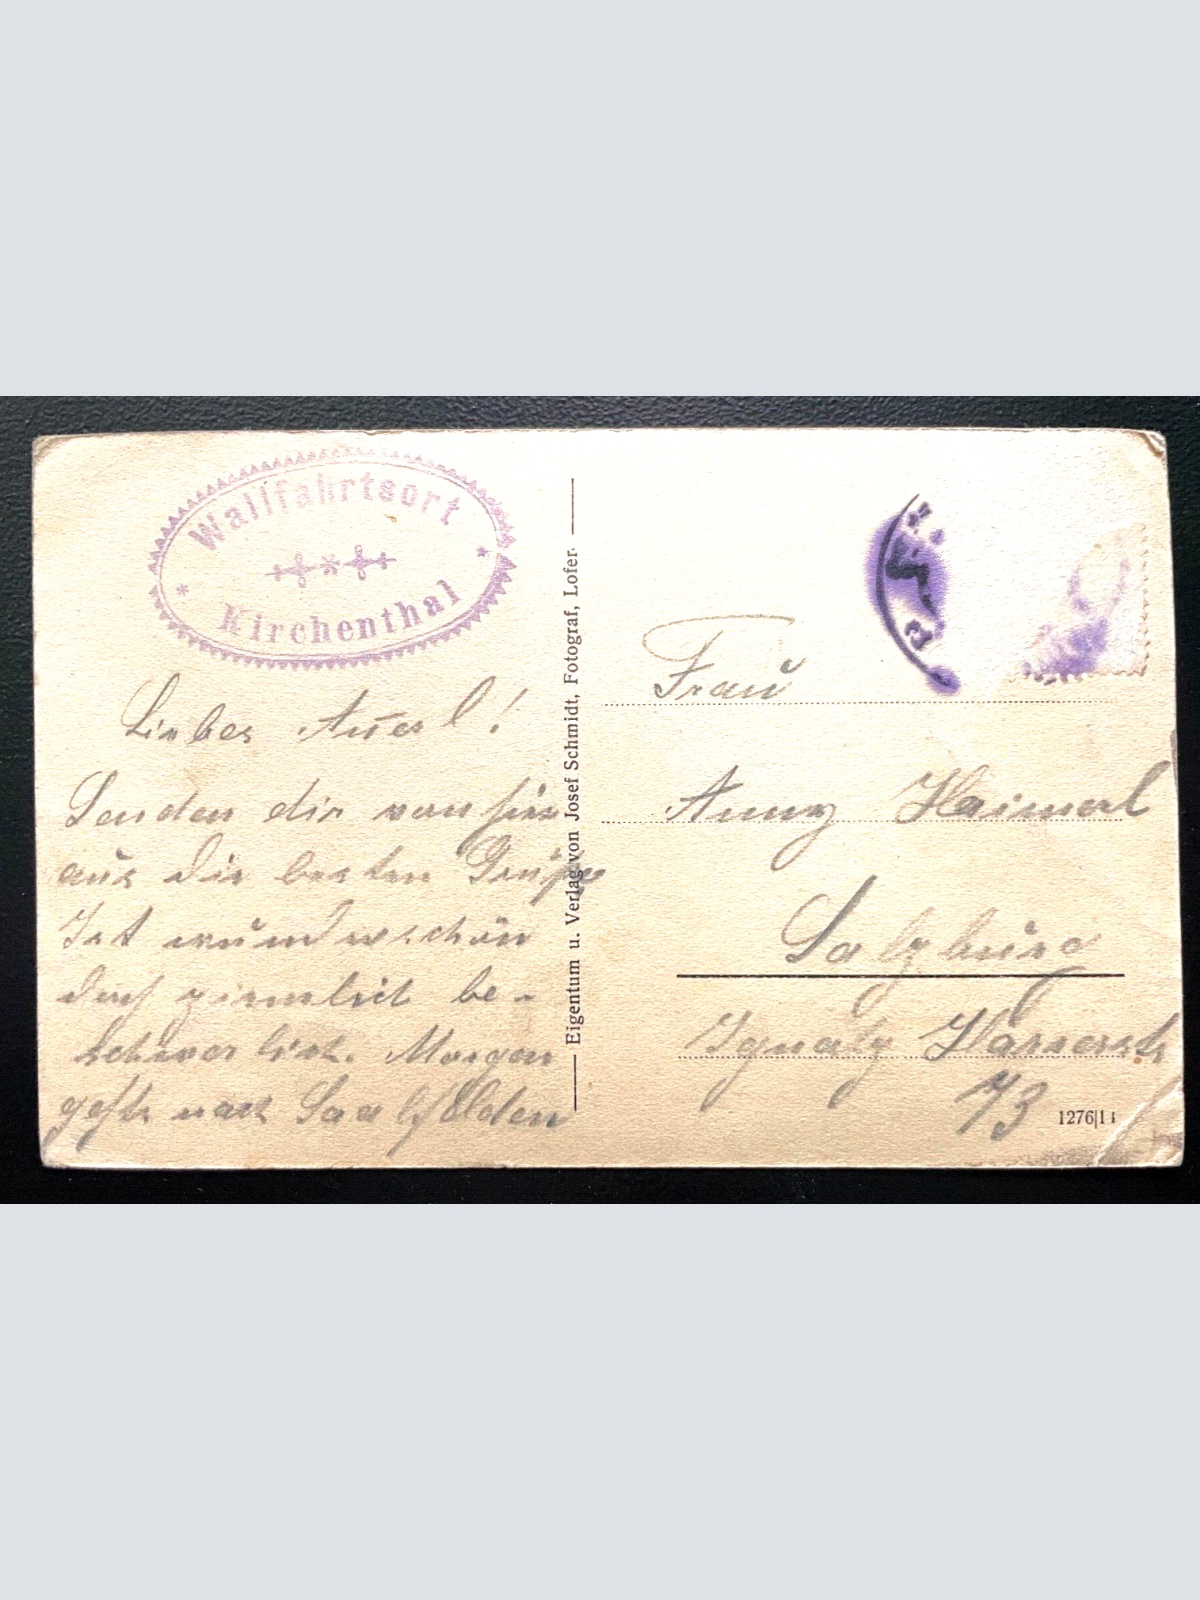 Wallfahrtsort
Kirchenthal
Liebes Annerl!
Senden dir von hier
aus die besten Grüße
Ist wunderschön
doch ziemlich be-
schwerlich. Morgen
gehts nach Saalfelden
Eigentum u. Verlag von Josef Schmidt, Fotograf, Lofer.
Frau
Anny Haimerl
Salzburg
Ignatz
13
1276|11